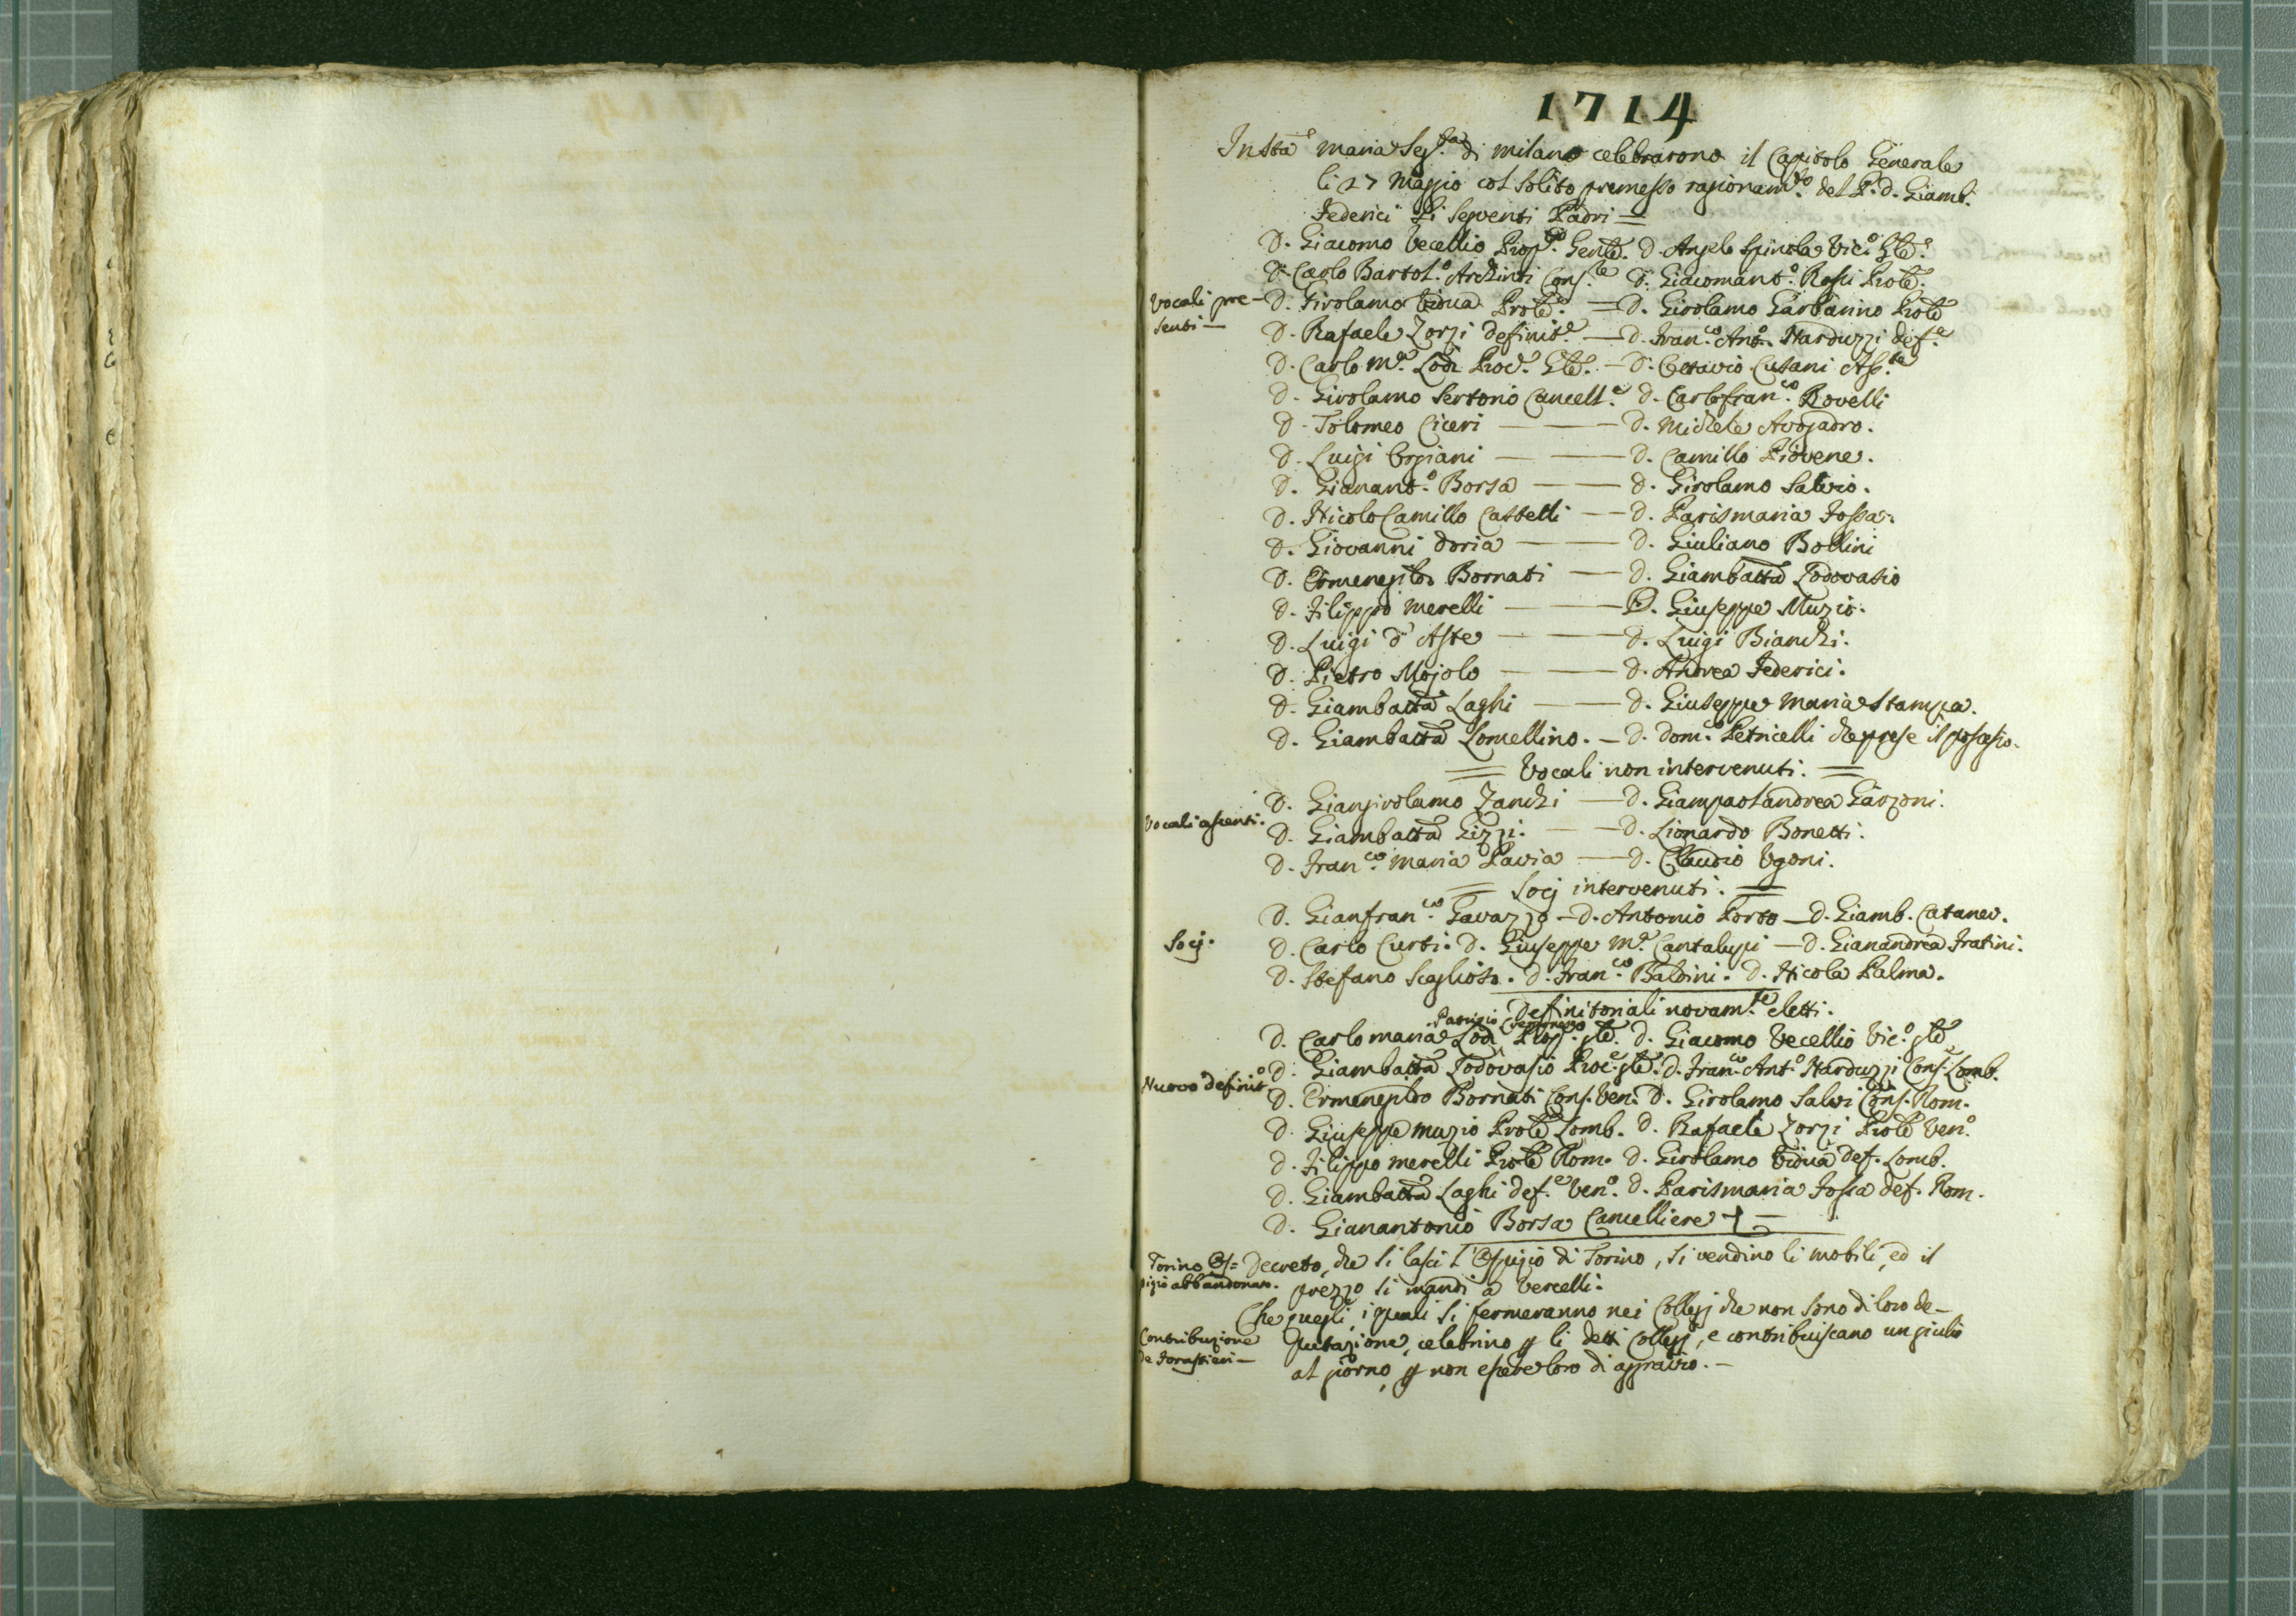 1714
In Sta Maria Seg.ta di Milano celebrarono il Capitolo Generale
li 27 Maggio col solito premesso ragionam.to del P. D. Giamb.
Federici li seguenti Padri =
D. Giacomo Vecellio Prop.to Gen.le. D. Angelo Spinola Vic.o Gle.
D. Carlo Bartol.o Archinti Cons.te D. Giacomant.o Rossi Prole.
Vocali pre-
senti —
D. Girolamo Vidua Prole. — D. Girolamo Garbarino Prole
D. Rafaele Zorzi definit.e — D. Fran.co Ant.o Narduzzi def.e
D. Carlo M.a Lodi Proc.e Gle. — D. Ottavio Cusani Ass.te
D. Girolamo Sertorio Cancell.e D. Carlofran.co Rovelli
D. Tolomeo Ciceri — — D. Michele Avogadro.
D. Luigi Orgiani — — D. Camillo Piovene.
D. Gianant.o Borsa — — D. Girolamo Salvio.
D. Nicolo Camillo Castelli — D. Parismaria Fossa.
D. Giovanni Doria — — D. Giuliano Bollini
D. Ermenegildo Bornati — D. Giambatta Lodovasio
D. Filippo Merelli — — D. Giuseppe Muzio.
D. Luigi d'Aste — — D. Luigi Bianchi.
D. Pietro Mojolo — — D. Andrea Federici.
D. Giambatta Laghi — — D. Giuseppe Maria Stampa.
D. Giambatta Lomellino. — D. Dom.co Petricelli che prese il possesso.
= Vocali non intervenuti. =
D. Giangirolamo Zanchi — D. Giampaolandrea Garzoni.
Vocali assenti.
D. Giambatta Gizzi. — D. Lionardo Bonetti.
D. Fran.co Maria Pavia — D. Claudio Ugoni.
= Socj intervenuti. =
D. Gianfran.co Gavazzo — D. Antonio Porto — D. Giamb. Cataneo.
Socj.
D. Carlo Curti. D. Giuseppe M.a Cantalupi — D. Gianandrea Fratini.
D. Stefano Scaglioso. D. Fran.co Baldini. D. Nicola Palma.
Definitoriali novam.te eletti.
Patrizio Cremonese
D. Carlo Maria Lodi Prop. gle. D. Giacomo Vecellio Vic.o gle
Nuovo definit.o
D. Giambatta Lodovasio Proc.e gle. D. Fran.co Ant.o Narduzzi Cons. Lomb.
D. Ermenegildo Bornati Cons. Ven. D. Girolamo Salvi Cons. Rom.
D. Giuseppe Muzio Prole Lomb. D. Rafaele Zorzi Prole Ven.o
D. Filippo Merelli Prole Rom. D. Girolamo Vidua def. Lomb.
D. Giambatta Laghi def.e Ven.o D. Parismaria Fossa def. Rom.
D. Gianantonio Borsa Cancelliere
Torino Os=
pizio abbandonato.
Decreto, che si lasci l'Ospizio di Torino, si vendino li mobili, ed il
prezzo si mandi a Vercelli.
Che quegli, i quali si fermeranno nei Collegj che non sono di loro de-
Contribuzione
de Forastieri —
putazione, celebrino p li detti Collegj, e contribuiscano un giulio
al giorno, p non essere loro di aggravio. —